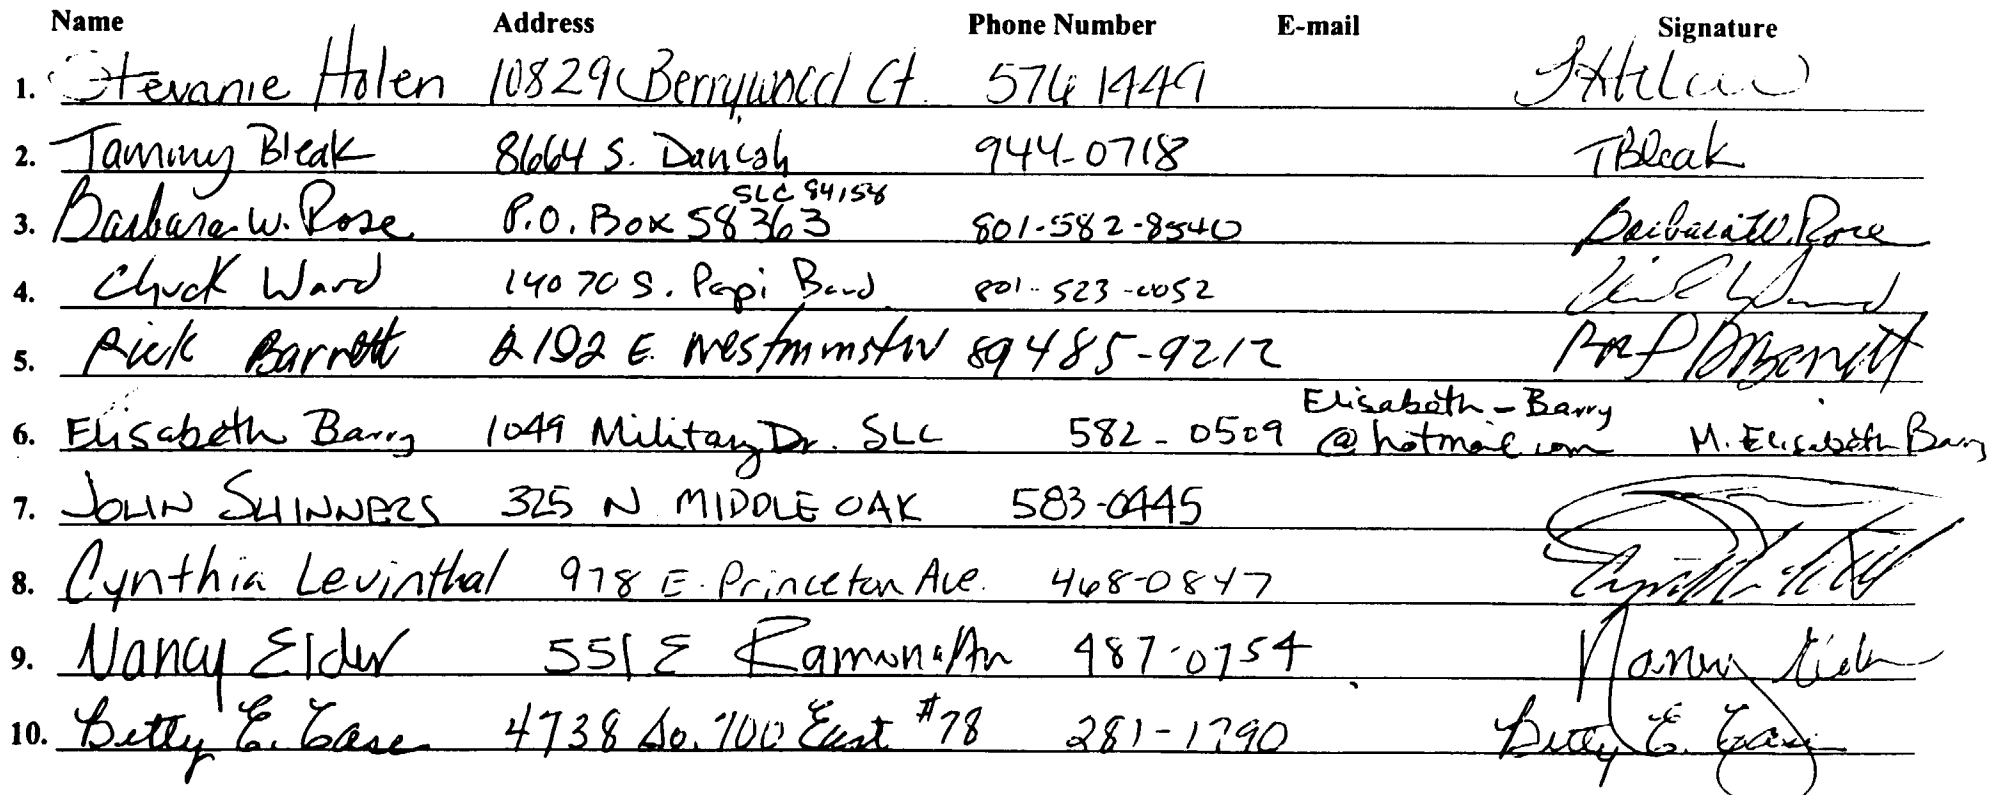 Name Address Phone Number E-mail Signature
1. Stevanie Holen 10829 Berrywood Ct. 576 1449
2. Tammy Bleak 8664 S. Danish 944-0718 TBleak
SLC 84158
3. Barbara W. Rose P.O. Box 58363 801-582-8540 Barbara W. Rose
4. Chuck Ward 14070 S. 801-523-0052
5. Rick Barrett E. Westminster 485-9212
Elisabeth-Barry
6. Elisabeth Barry 1049 Military Dr. SLC 582-0509 @hotmail.com M. Elisabeth Barry
7. JOHN SHINNERS 325 N MIDDLE OAK 583-0445
8. Cynthia Levinthal 978 E. Princeton Ave. 468-0847
9. Nancy Elder 551 E Ramona Av 487-0754 Nancy Elder
10. Betty E. Case 4738 So. 700 East #78 281-1790 Betty E. Case